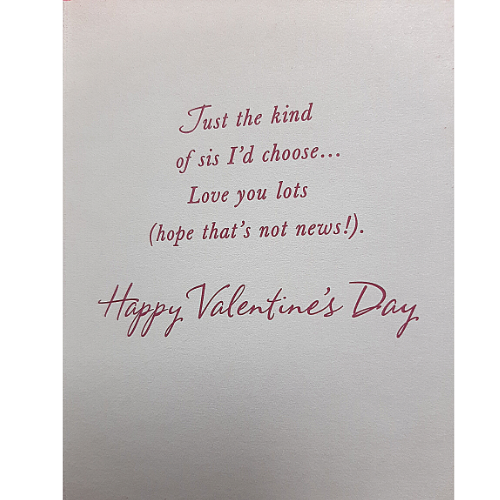 Just the kind
of sis I'd choose...
Love you lots
(hope that's not news!).
Happy Valentine's Day